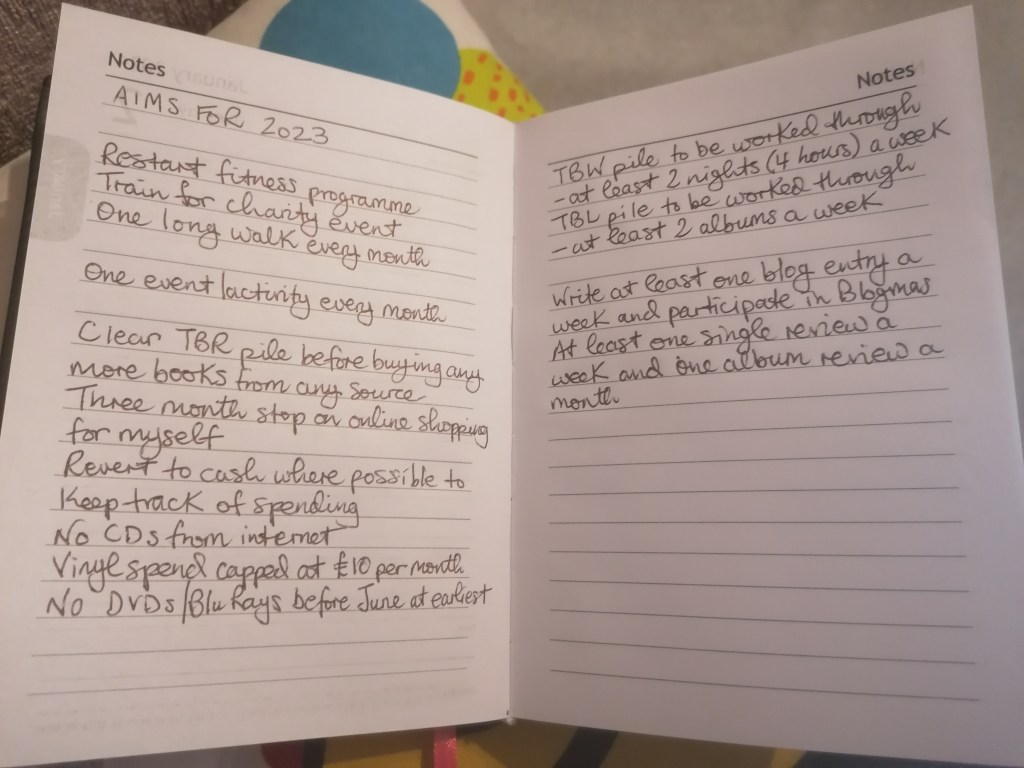 Notes
AIMS FOR 2023
Restart fitness programme
Train for charity event
One long walk every month
One event/activity every month
Clear TBR pile before buying any
more books from any source
Three month stop on online shopping
for myself
Revert to cash where possible to
keep track of spending
No CDs from internet
Vinyl spend capped at £10 per month
No DVDs/Blu Rays before June at earliest
Notes
TBW pile to be worked through
- at least 2 nights (4 hours) a week
TBL pile to be worked through
- at least 2 albums a week
Write at least one blog entry a
week and participate in Blogmas
At least one single review a
week and one album review a
month